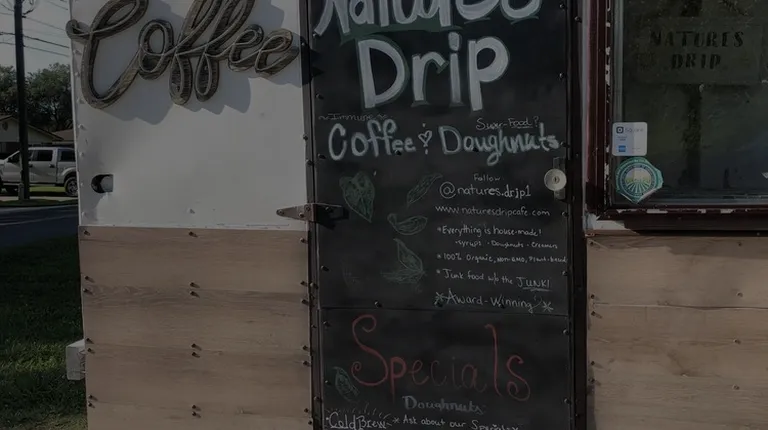 Coffee
Natures
Drip
~Immune~
Super-Food?
Coffee & Doughnuts
Follow
@natures.drip1
www.naturesdripcafe.com
*Everything is house-made!
-syrups - Doughnuts - Creamers
*100% Organic, NON-GMO, Plant-based
*Junk food w/o the JUNK!
*Award-Winning*
Specials
Doughnuts
Cold Brew
* Ask about our Specials
NATURES
DRIP